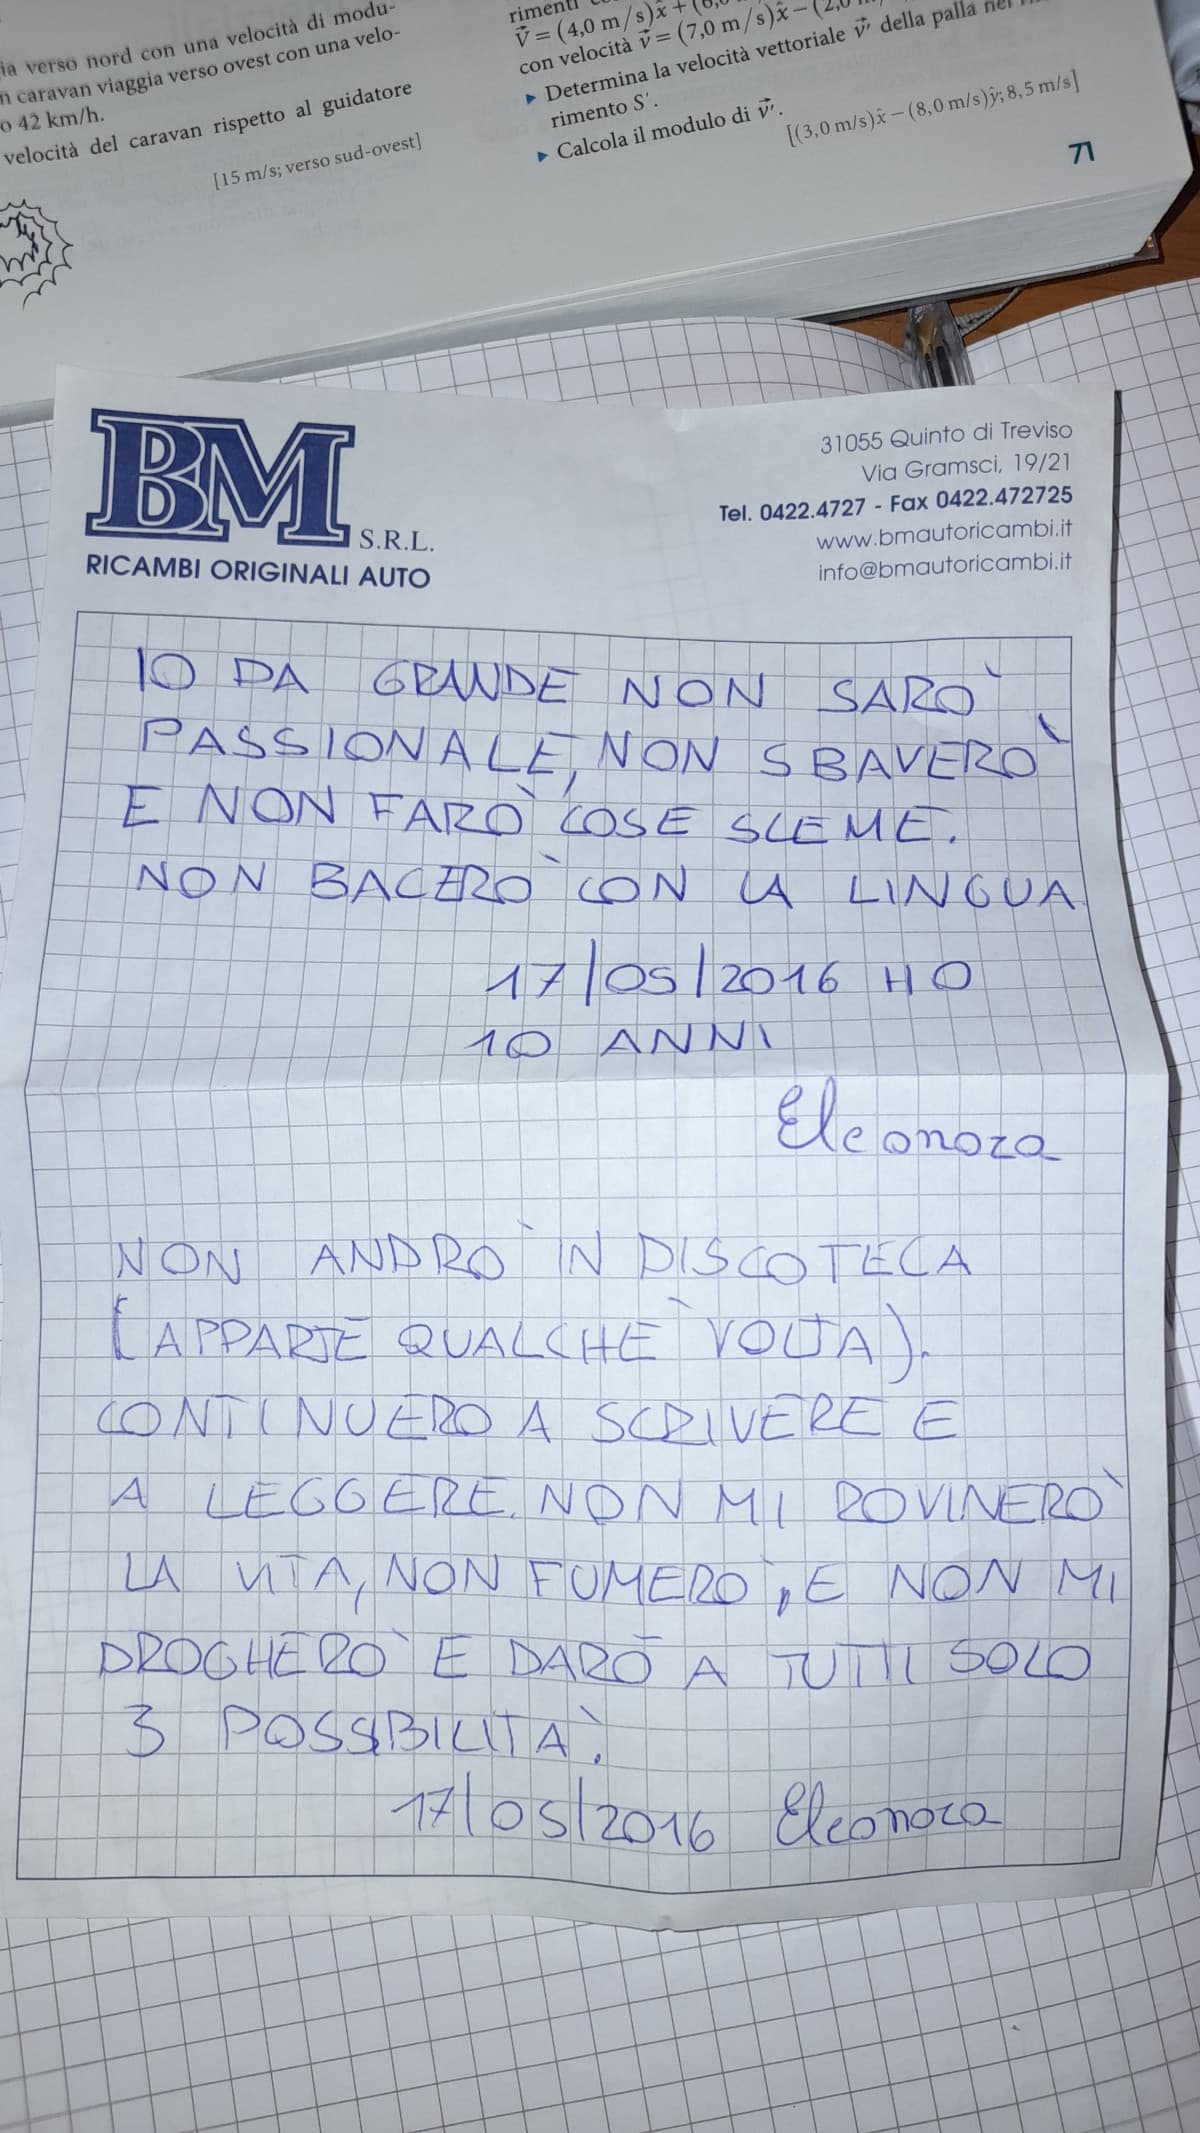 ia verso nord con una velocità di modu-
n caravan viaggia verso ovest con una velo-
o 42 km/h.
velocità del caravan rispetto al guidatore
[15 m/s; verso sud-ovest]
rimenti
V⃗ = (4,0 m/s)x̂ + (6,0
con velocità v⃗ = (7,0 m/s)x̂ − (2,0
▸ Determina la velocità vettoriale v⃗′ della palla nel
rimento S′.
▸ Calcola il modulo di v⃗′.
[(3,0 m/s)x̂ − (8,0 m/s)ŷ; 8,5 m/s]
71
BM S.R.L.
RICAMBI ORIGINALI AUTO
31055 Quinto di Treviso
Via Gramsci, 19/21
Tel. 0422.4727 - Fax 0422.472725
www.bmautoricambi.it
info@bmautoricambi.it
IO DA GRANDE NON SARÒ
PASSIONALE, NON SBAVERÒ
E NON FARÒ COSE SCEME.
NON BACERÒ CON LA LINGUA
17/05/2016 HO
10 ANNI
Eleonora
NON ANDRÒ IN DISCOTECA
(APPARTE QUALCHÈ VOLTA).
CONTINUERO A SCRIVERE E
A LEGGERE. NON MI ROVINERÒ
LA VITA, NON FUMERÒ, E NON MI
DROGHERÒ E DARÒ A TUTTI SOLO
3 POSSIBILITÀ.
17/05/2016 Eleonora